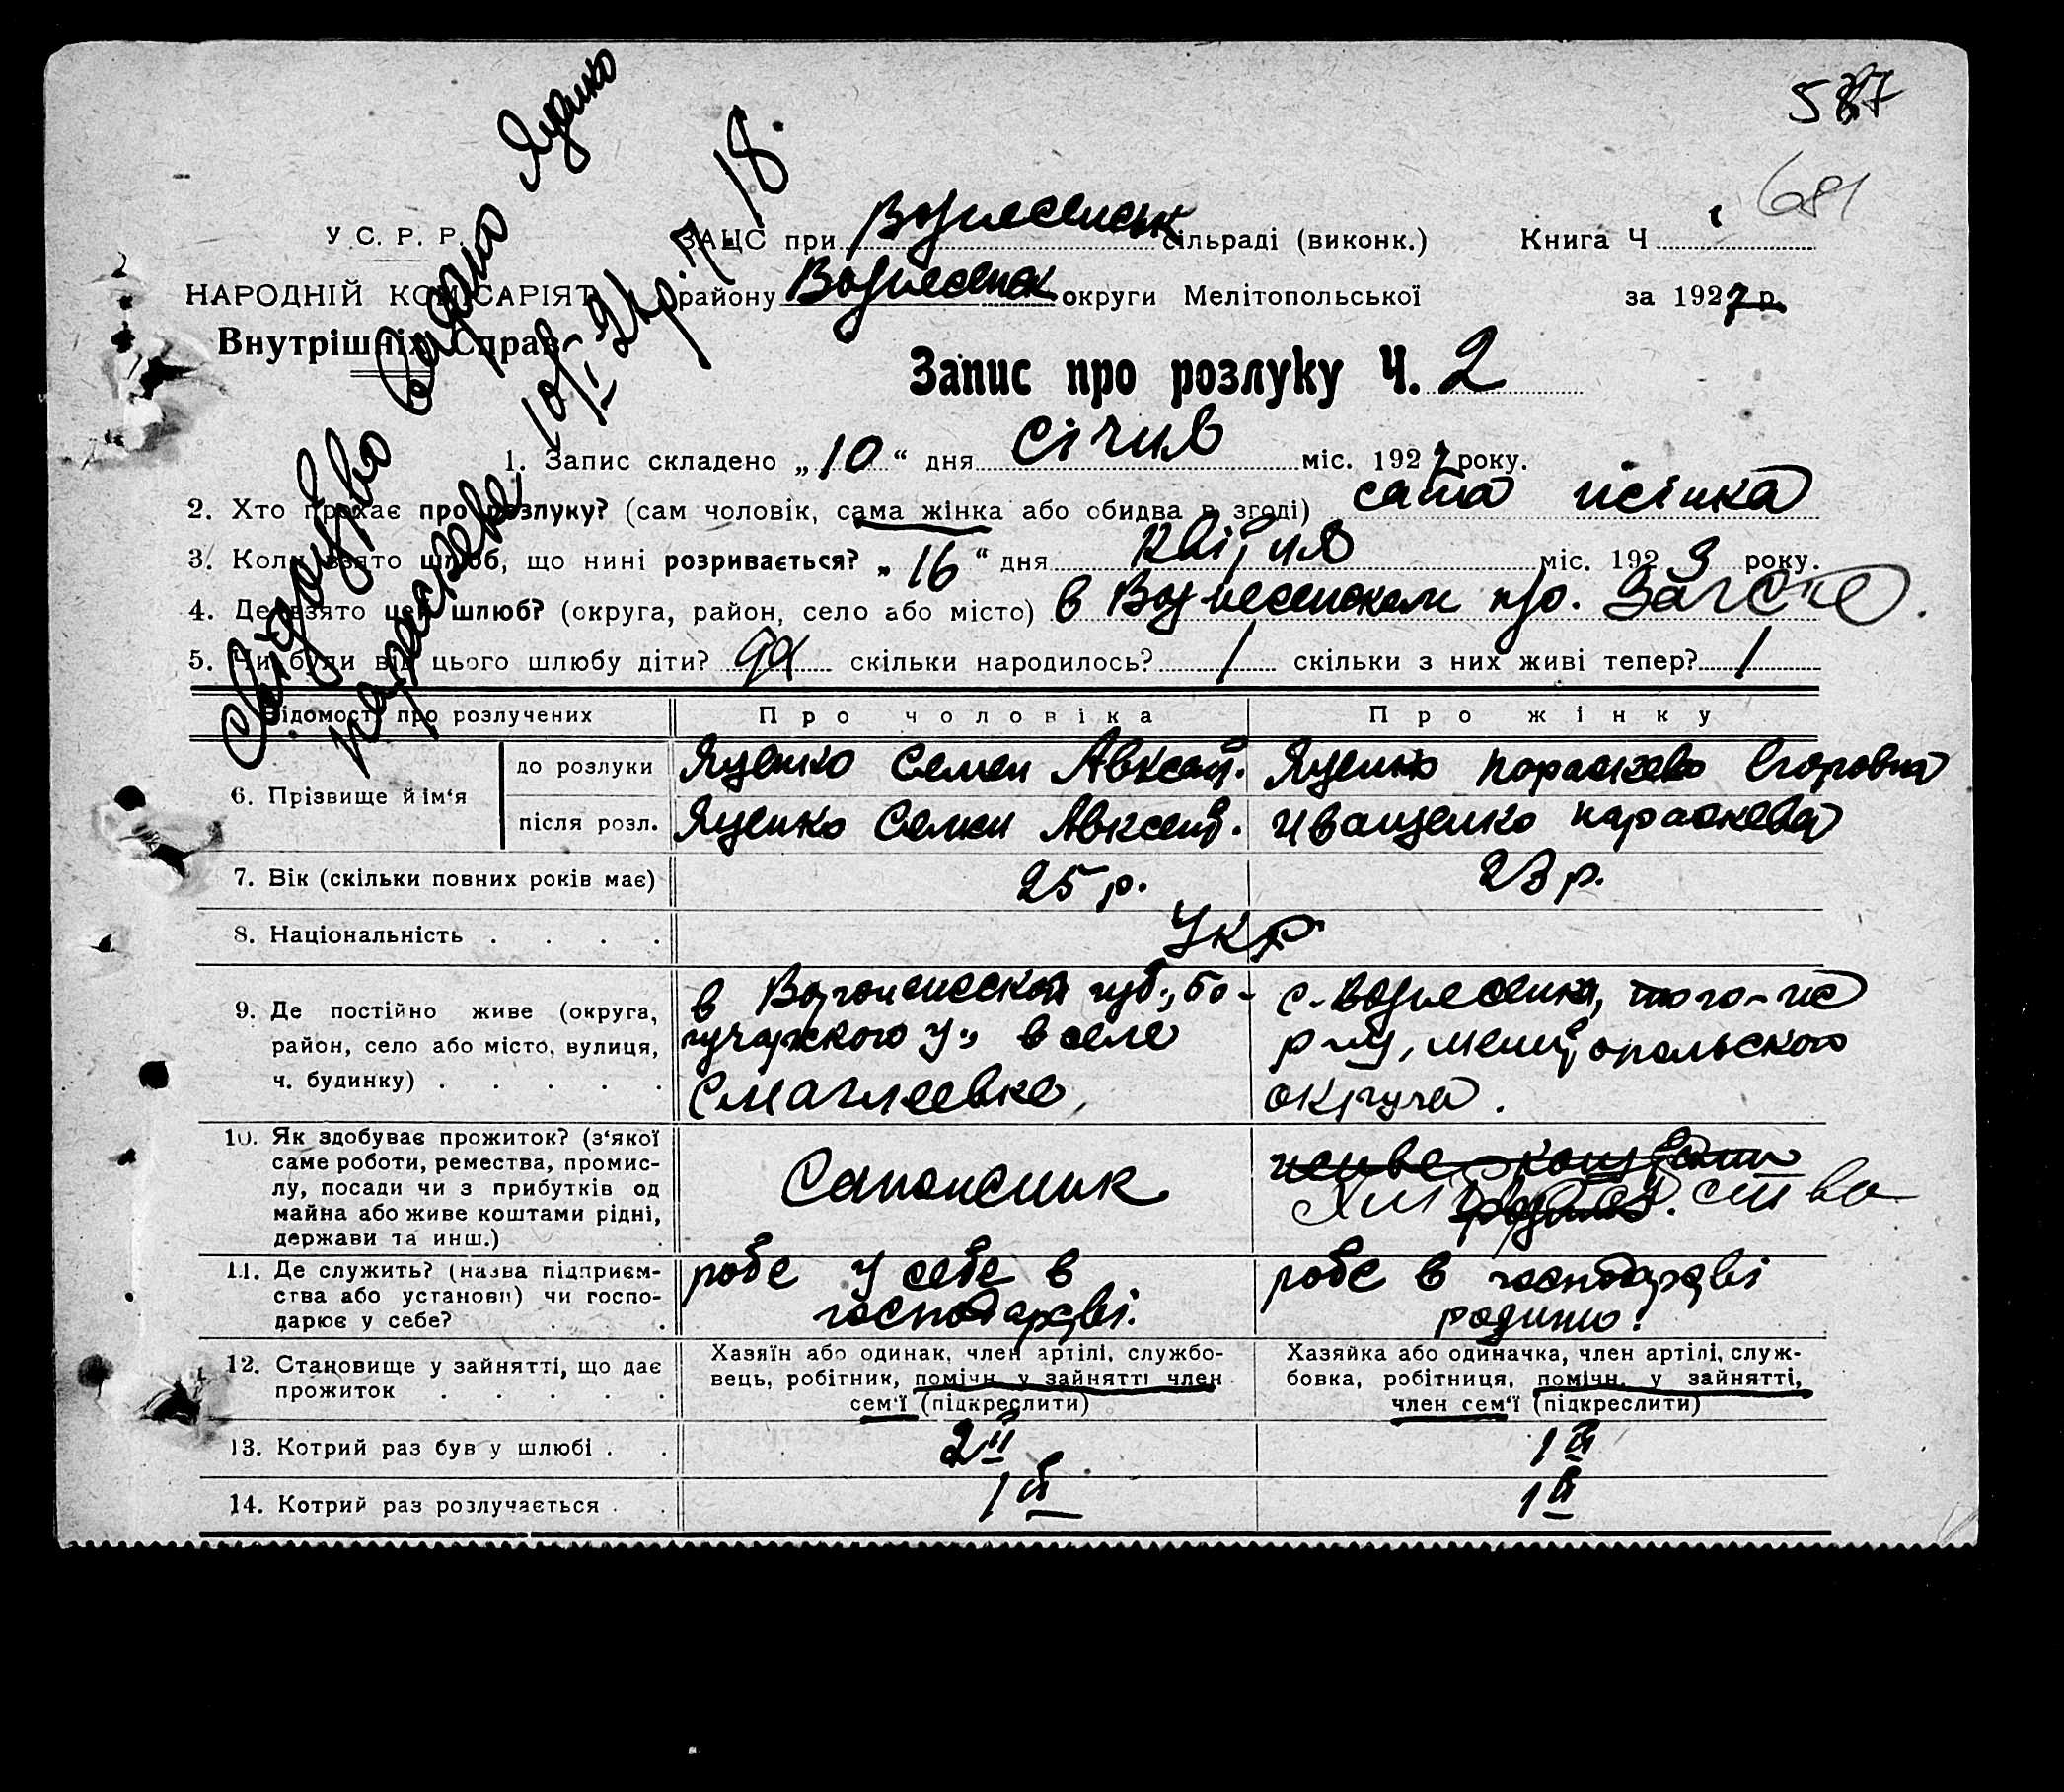 587
681
У С. Р. Р.
НАРОДНІЙ КОМІСАРІЯТ
Внутрішніх Справ
ЗАЦС при Вознесенськ сільраді (виконк.)
Книга Ч 1
району Вознесенск округи Мелітопольської
за 1927 р.
Запис про розлуку Ч. 2
Свідоцтво видано Яценко
Параскеве 10/I 27 р. 18.
1. Запис складено „10“ дня січня міс. 1927 року.
2. Хто прохає про розлуку? (сам чоловік, сама жінка або обидва в згоді) сама жінка
3. Коли взято шлюб, що нині розривається? „16“ дня квітня міс. 1923 року.
4. Де взято цей шлюб? (округа, район, село або місто) в Вознесенском Загсе.
5. Чи були від цього шлюбу діти? да скільки народилось? 1 скільки з них живі тепер? 1
Відомості про розлучених
Про чоловіка
Про жінку
6. Прізвище й ім‘я
до розлуки
Яценко Семен Авксент.
Яценко Параскева Егоровна
після розл.
Яценко Семен Авксент.
Иващенко Параскева
7. Вік (скільки повних років має)
25 р.
23 р.
8. Національність
Укр
9. Де постійно живе (округа, район, село або місто, вулиця, ч. будинку)
в Воронежской губ., бо-
гучарского у., в селе
Смаглеевке
с. Вознесенка, того-же
р-ну, Мелитопольского
округа.
10. Як здобуває прожиток? (з‘якої
саме роботи, ремества, промис-
лу, посади чи з прибутків од
майна або живе коштами рідні,
держави та инш.)
Сапожник
11. Де служить? (назва підприєм-
ства або установи) чи госпо-
дарює у себе?
робе у себе в
господарстві.
робе в господарстві
родини.
12. Становище у зайнятті, що дає
прожиток
Хазяїн або одинак, член артілі, службо-
вець, робітник, помічн. у зайнятті член
сем‘ї (підкреслити)
Хазяйка або одиначка, член артілі, служ-
бовка, робітниця, помічн. у зайнятті,
член сем‘ї (підкреслити)
13. Котрий раз був у шлюбі
2й
1й
14. Котрий раз розлучається
1й
1й